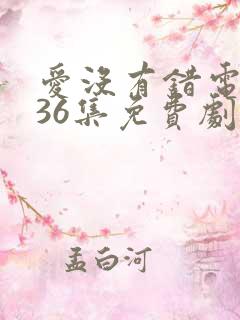 愛沒有錯電
36集免費劇
孟白河